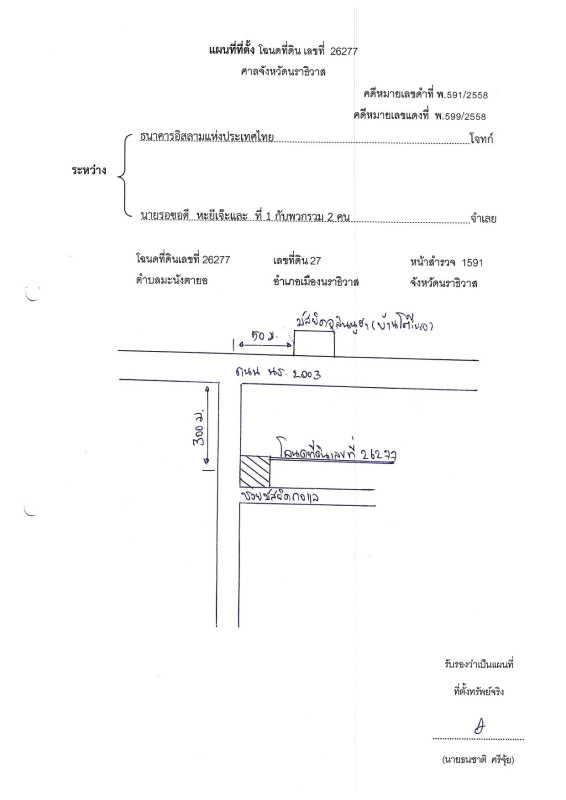 แผนที่ที่ตั้ง โฉนดที่ดิน เลขที่ 26277
ศาลจังหวัดนราธิวาส
คดีหมายเลขดำที่ พ.591/2558
คดีหมายเลขแดงที่ พ.599/2558
ธนาคารอิสลามแห่งประเทศไทย โจทก์
ระหว่าง
นายรอซอดี หะยีเจ๊ะและ ที่ 1 กับพวกรวม 2 คน จำเลย
โฉนดที่ดินเลขที่ 26277 เลขที่ดิน 27 หน้าสำรวจ 1591
ตำบลมะนังตายอ อำเภอเมืองนราธิวาส จังหวัดนราธิวาส
มัสยิด (บ้าน
50 ม.
ถนน นธ. 2003
300 ม.
โฉนดที่ดินเลขที่ 26277
รับรองว่าเป็นแผนที่
ที่ตั้งทรัพย์จริง
(นายธนชาติ ศรีจุ้ย)